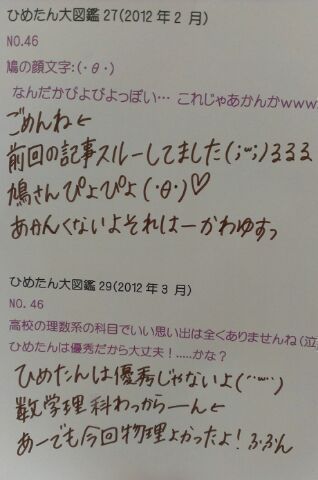 ひめたん大図鑑27(2012年2月)
NO.46
鳩の顔文字:(・θ・)
なんだかぴよぴよっぽい… これじゃあかんかwww
ごめんね←
前回の記事スルーしてました(;ω;)るるる
鳩さんぴよぴよ(・θ・)♡
あかんくないよそれはーかわゆすっ
ひめたん大図鑑29(2012年3月)
NO.46
高校の理数系の科目でいい思い出は全くありませんね(泣
ひめたんは優秀だから大丈夫!.....かな?
ひめたんは優秀じゃないよ(¨ω¨)
数学理科わっからーん←
あーでも今回物理よかったよ!ふふん